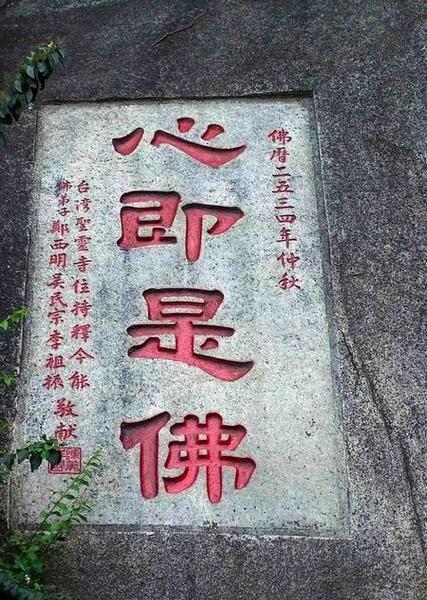 佛曆二五三四年仲秋
心即是佛
台湾聖靈寺住持釋今能
佛弟子鄭西明吴民宗李祖振 敬献